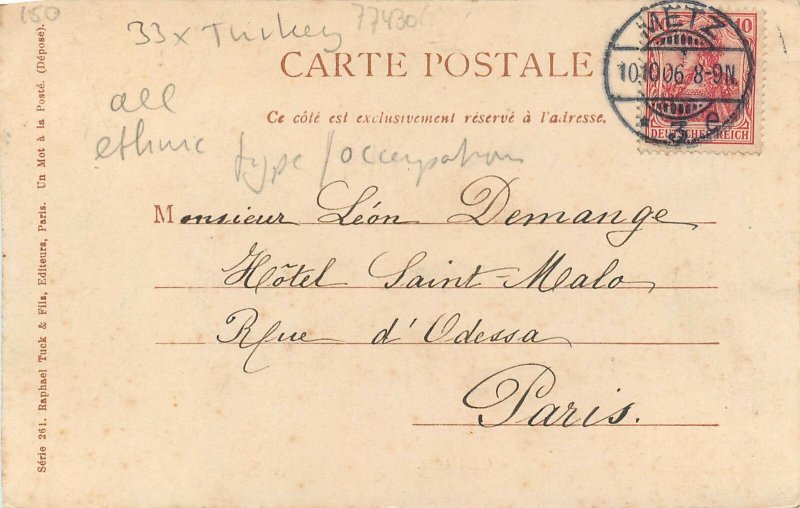 150
33x Turkey
774306
CARTE POSTALE
Ce côté est exclusivement réservé à l'adresse.
all
ethnic type/occupation
METZ
10.10.06. 8-9N.
* 3 e
10
DEUTSCHES REICH
Monsieur Léon Demange
Hôtel Saint-Malo
Rue d'Odessa
Paris.
Série 261. Raphael Tuck & Fils, Editeurs, Paris. Un Mot à la Poste. (Déposé).